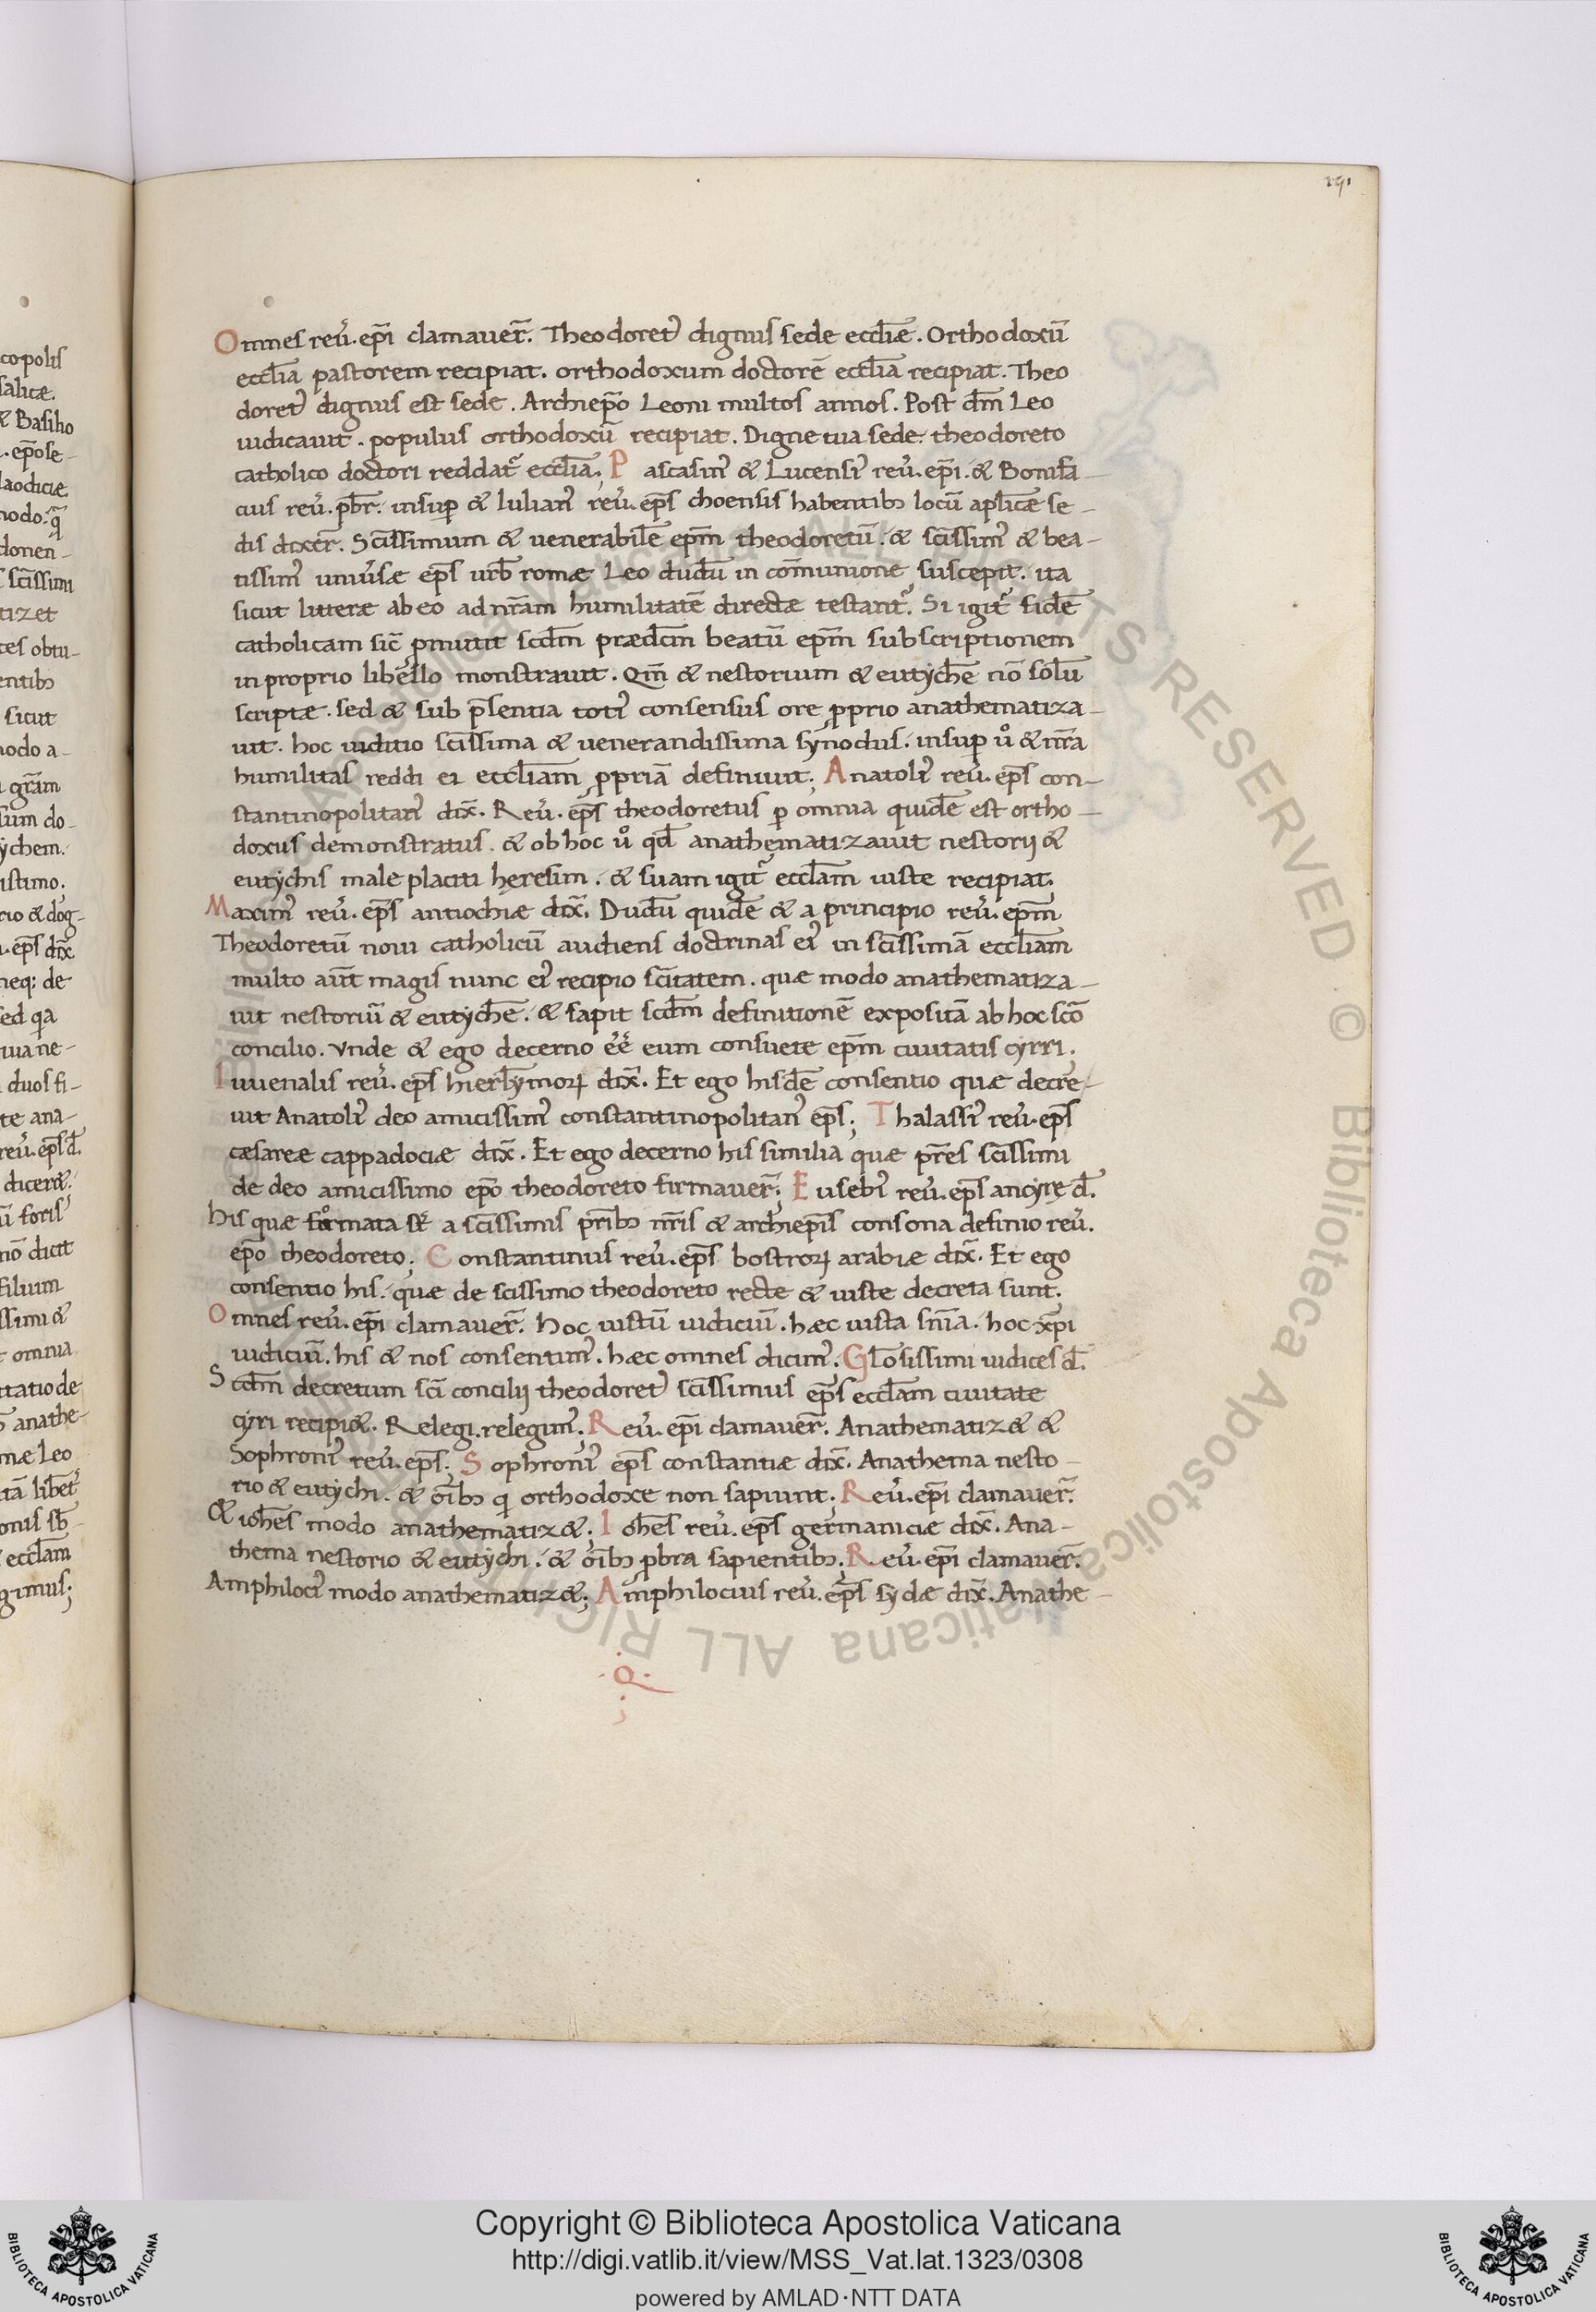 191
copolis
salicæ.
& Basilio
. ep̄o se-
laodiciæ
donen-
sc̄issimi
tiz et
ces obtu-
entibꝫ
sicut
nodo a-
grām
sum do-
ychem.
istimo.
rio & dog-
. ep̄s dix̄
neq; de
sed qa
iua ne-
duos fi-
te ana-
reu᷒. ep̄s d̄.
foris
nō dicit
filium
ssimi &
omnia
tatio de
anathe-
mæ Leo
onis sb̄-
eccl̄am
gimus;
Omnes reu᷒. ep̄i clamauer̄. Theodoret᷒ dignus sede eccl̄iæ. Orthodoxū
eccl̄ia pastorem recipiat. orthodoxum doctorē eccl̄ia recipiat. Theo
doret᷒ dignus est sede. Archiep̄o Leoni multos annos. Post dm̄ Leo
iudicauit. populus orthodoxū recipiat. Digne tua sede. theodoreto
catholico doctori reddat᷒ eccl̄ia; Pascasin᷒ & Lucensi᷒ reu᷒. ep̄i. & Bonifa-
cius reu᷒. pb̄r. insuꝑ & Iulian᷒ reu᷒. ep̄s choensis habentibꝫ locū apl̄icæ se-
dis dixer̄. Sc̄issimum & uenerabilē ep̄m theodoretū. & sc̄issim᷒ & bea-
tissim᷒ uniu᷒sæ ep̄s urb̄ romæ Leo dudū in cōmunione suscepit. ita
sicut litteræ ab eo ad nr̄am humilitatē directæ testant᷒. Si igit᷒ fidē
catholicam sic̄ ꝓmittit scd̄m prædc̄m beatū ep̄m subscriptionem
in proprio libello monstrauit. Qm̄ & nestorium & eutychē nō solū
scriptæ. sed & sub p̄sentia toti᷒ consensus ore ꝓprio anathematiza-
uit. hoc iuditio sc̄issima & uenerandissima synodus. insuꝑ u᷒o & nr̄a
humilitas reddi ei eccl̄iam ꝓpriā definiuit; Anatoli᷒ reu᷒. ep̄s con-
stantinopolitan᷒ dix̄. Reu᷒. ep̄s theodoretus ꝑ omnia quidē est ortho-
doxus demonstratus. & ob hoc u᷒o qd̄ anathematizauit nestorij &
eutychis male placiti hęresim. & suam igit᷒ eccl̄am iuste recipiat;
Maxim᷒ reu᷒. ep̄s antiochiæ dix̄. Dudū quidē & a principio reu᷒. ep̄m
Theodoretū noui catholicū audiens doctrinas ei᷒ in sc̄issimā eccl̄iam
multo aūt magis nunc ei᷒ recipio sc̄itatem. quæ modo anathematiza-
uit nestoriū & eutychē. & sapit scd̄m definitionē expositā ab hoc sc̄o
concilio. Vnde & ego decerno eē eum consuete ep̄m ciuitatis cyrri;
Iuuenalis reu᷒. ep̄s hierl̄ymoꝝ dix̄. Et ego hisdē consentio quæ decre-
uit Anatoli᷒ deo amicissim᷒ constantinopolitan᷒ ep̄s; Thalassi᷒ reu᷒. ep̄s
cæsareæ cappadociæ dix̄. Et ego decerno his similia quæ pr̄es sc̄issimi
de deo amicissimo ep̄o theodoreto firmauer̄; Eusebi᷒ reu᷒. ep̄s ancyrę d̄.
his quæ formata st̄ a sc̄issimis pr̄ibꝫ nr̄is & archiep̄is consona definio reu᷒.
ep̄o theodoreto; Constantinus reu᷒. ep̄s bostroꝝ arabiæ dix̄. Et ego
consentio his. quæ de scissimo theodoreto recte & iuste decreta sunt.
Omnes reu᷒. ep̄i clamauer̄. hoc iustū iudiciū. hæc iusta sn̄ia. hoc xp̄i
iudiciū. his & nos consentim᷒. hæc omnes dicim᷒. Gl̄osissimi iudices d̄.
Scd̄m decretum sc̄i concilij theodoret᷒ sc̄issimus ep̄s eccl̄am ciuitate
cyri recipi&. Relegi. relegim᷒; Reu᷒. ep̄i clamauer̄. Anathematiz& &
Sophroni᷒ reu᷒. ep̄s; Sophroni᷒ ep̄s constantiæ dix̄. Anathema nesto-
rio & eutychi. & oīb; qi orthodoxe non sapiunt; Reu᷒. ep̄i clamauer̄.
& ioh̄es modo anathematiz&; Ioh̄es reu᷒. ep̄s germaniciæ dix̄. Ana-
thema nestorio & eutychi. & oībꝫ pbra sapientibꝫ. Reu᷒. ep̄i clamauer̄.
Amphiloci᷒ modo anathematiz&; Amphilocius reu᷒. ep̄s sydæ dix̄. Anathe-
.Q.
RIGHTS RESERVED © Biblioteca Apostolica Vaticana ALL RIGHTS
Copyright © Biblioteca Apostolica Vaticana
http://digi.vatlib.it/view/MSS_Vat.lat.1323/0308
powered by AMLAD·NTT DATA
BIBLIOTECA APOSTOLICA VATICANA
BIBLIOTECA APOSTOLICA VATICANA